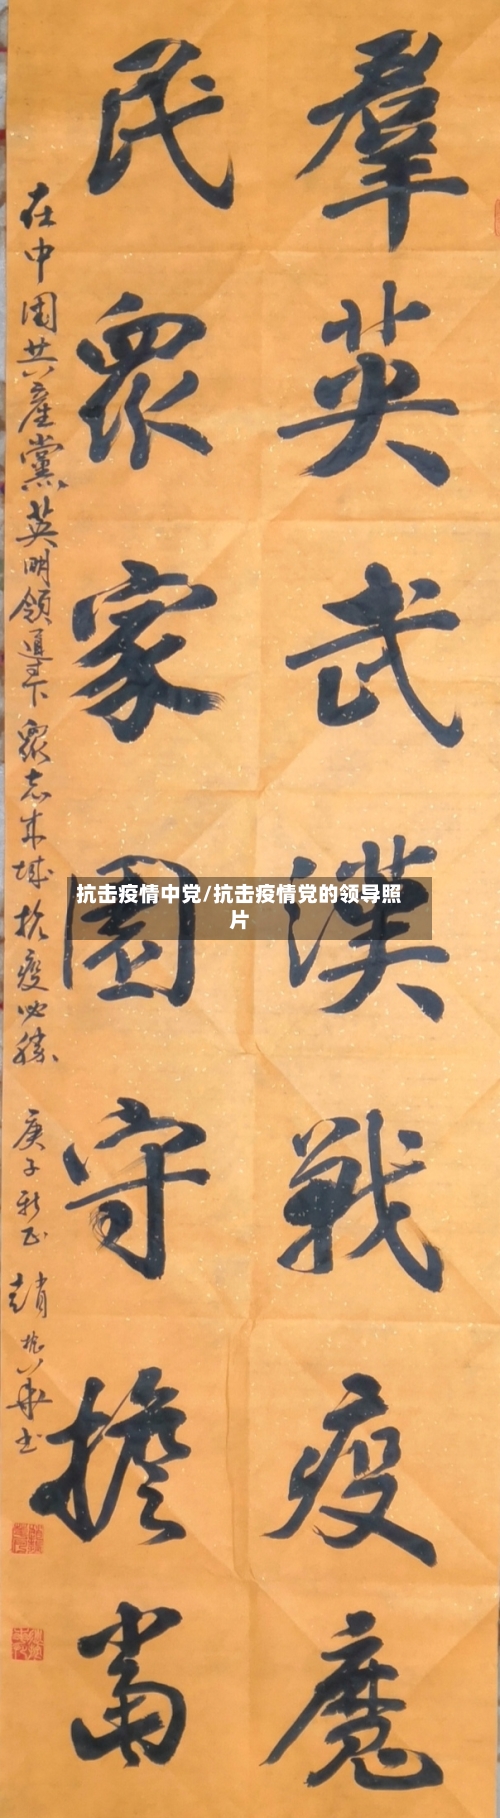 羣英武漢戰疫魔
民眾家園守擔當
在中国共產黨英明領導下眾志成城抗疫必勝
庚子新正 趙華書
抗击疫情中党/抗击疫情党的领导照
片